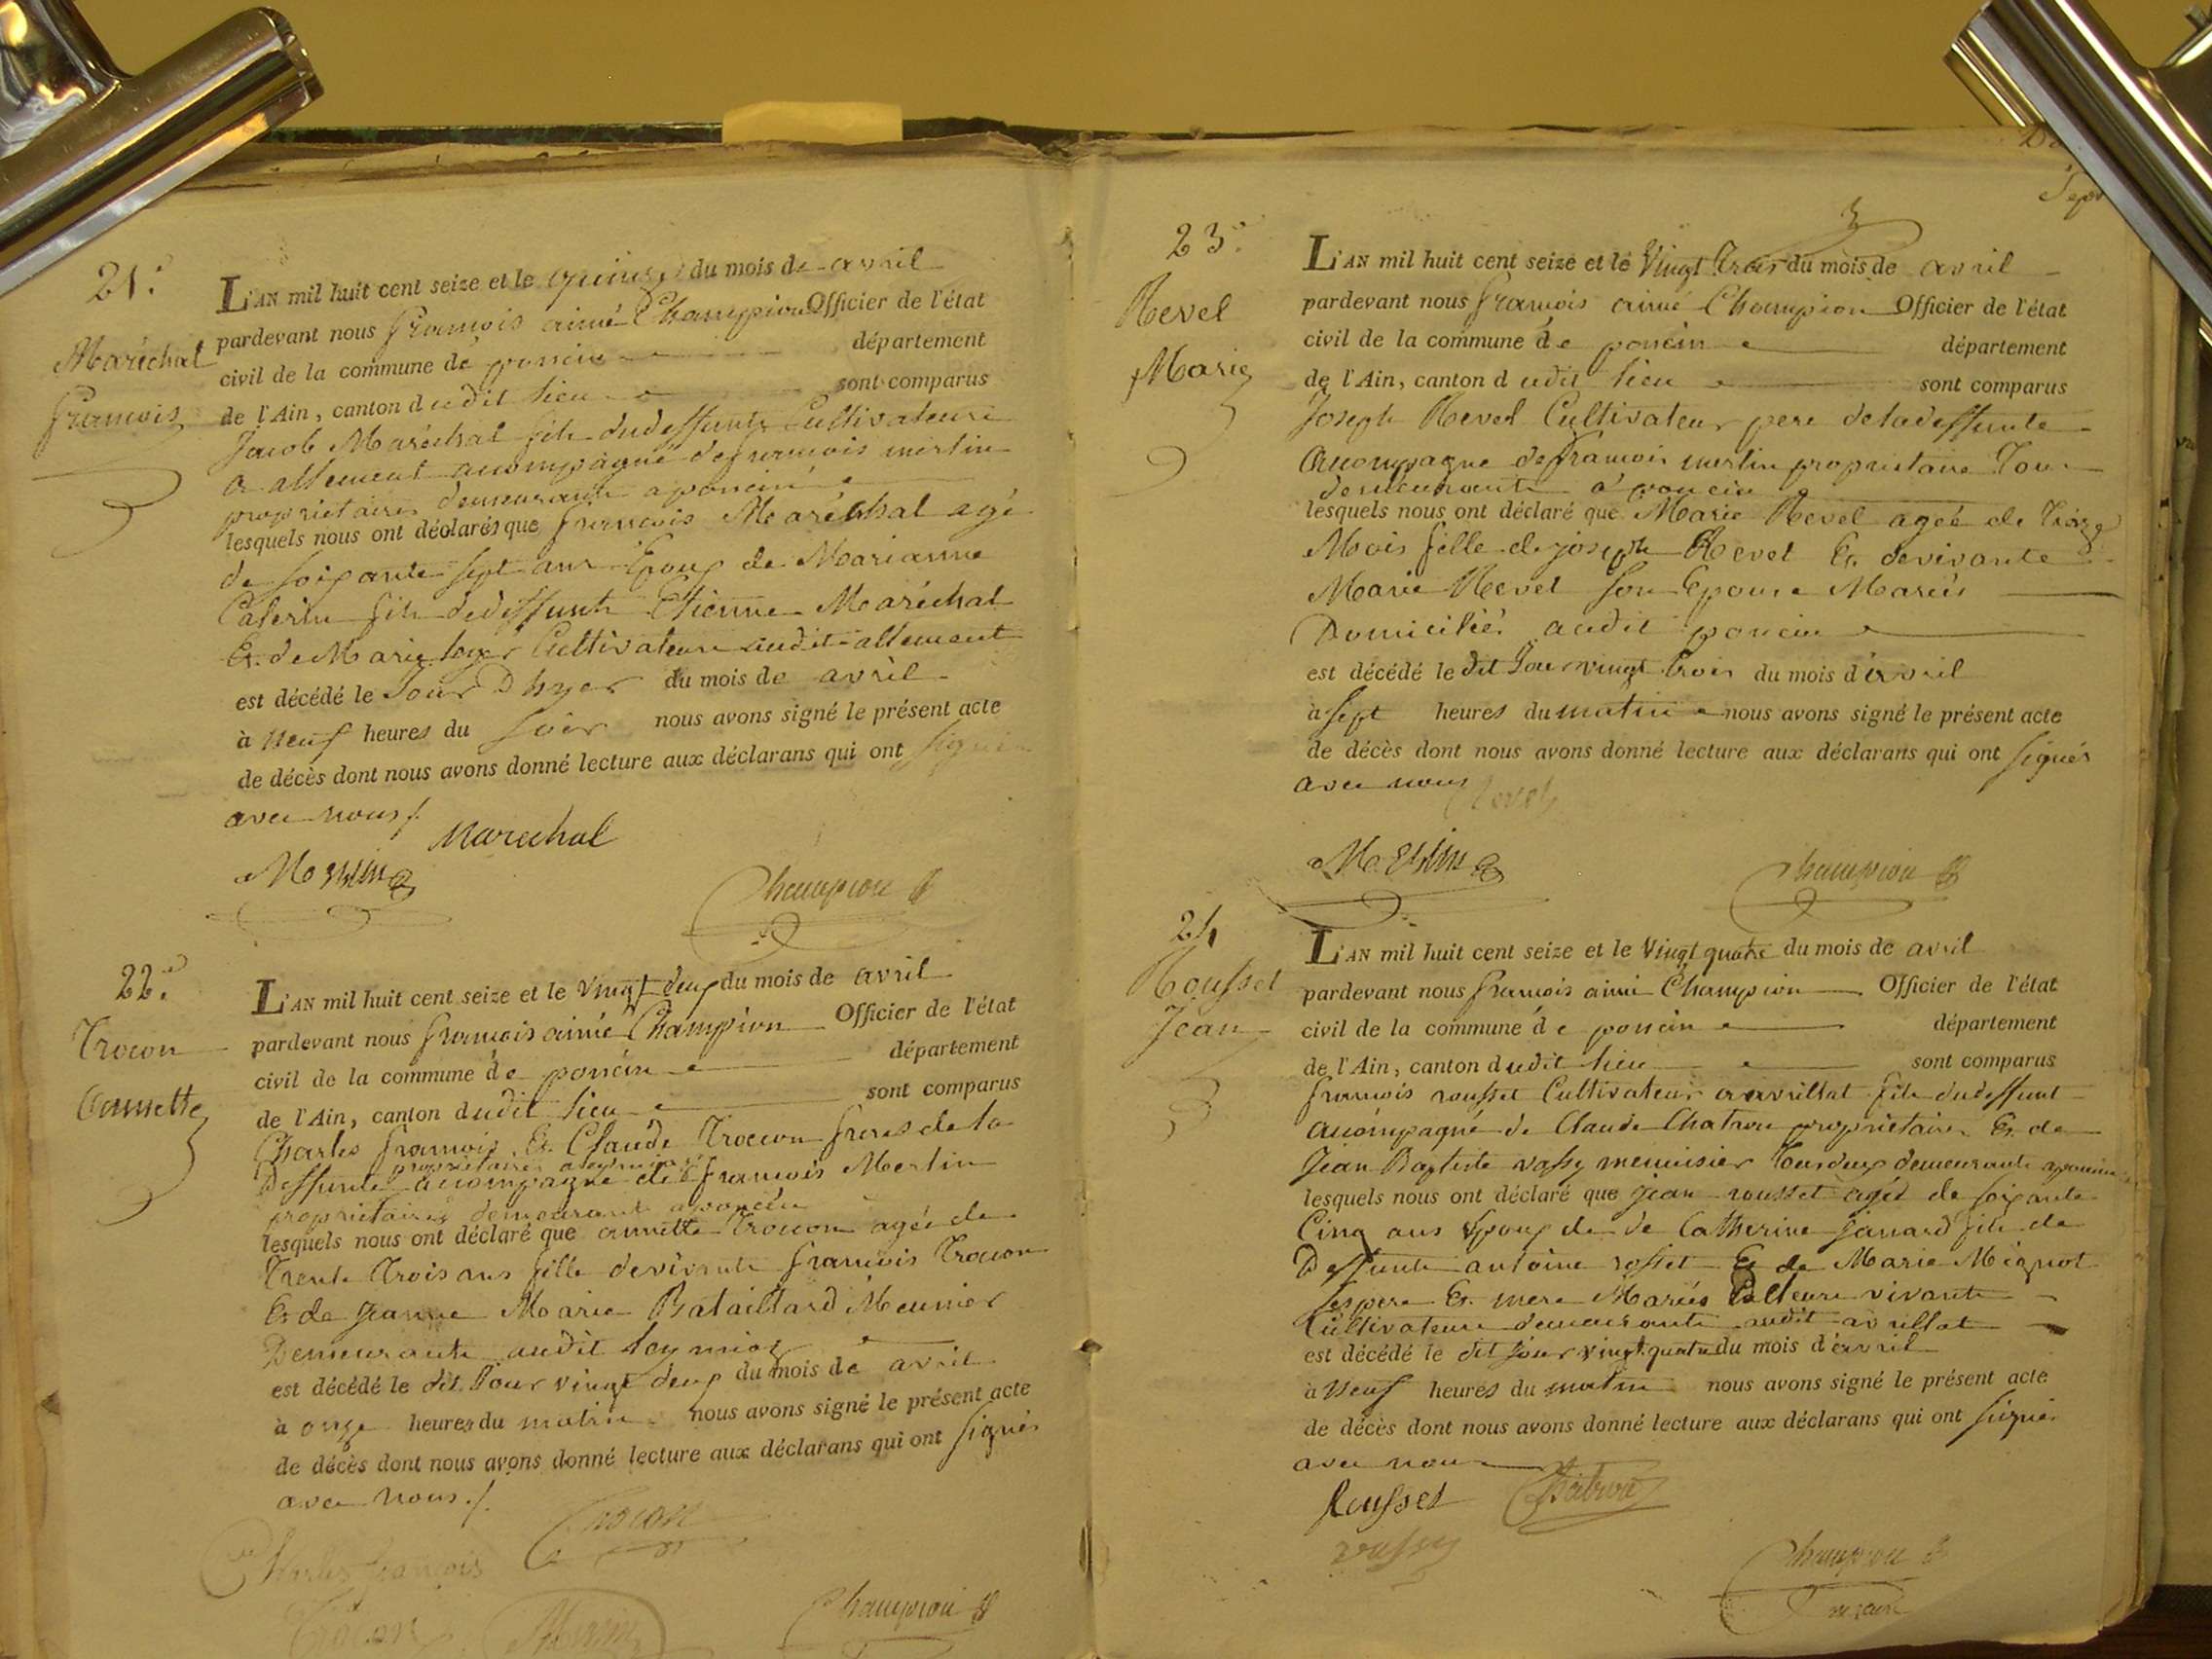 21.
Maréchal
francois
L'AN mil huit cent seize et le quinze du mois de avril
pardevant nous francois aimé Champion Officier de l'état
civil de la commune de poncin département
de l'Ain, canton dudit lieu sont comparus
Jacob Maréchal fils dudeffunt Cultivateur
a allement acompagné de francois merlin
propriétaires demeurants a poncin
lesquels nous ont déclarés que francois Maréchal agé
de soixante sept ans Epoux de Marianne
fils de deffunts Etienne Maréchal
Et de Marie Cultivateurs audit allement
est décédé le Jour D hyer du mois de avril
à neuf heures du soir nous avons signé le présent acte
de décès dont nous avons donné lecture aux déclarans qui ont signés
avec nous /.
Marechal
Merlin
Champion
22.
Trocon
Annette
L'AN mil huit cent seize et le vingt deux du mois de avril
pardevant nous francois aimé Champion Officier de l'état
civil de la commune de poncin département
de l'Ain, canton dudit lieu sont comparus
Charles francois Et Claude Trocon freres de la
propriétaires a leymiat
Deffunte acompagné de francois Merlin
propriétaires demeurants a poncin
lesquels nous ont déclaré que annette Trocon agée de
Trente Trois ans fille de vivants francois Trocon
Et de Jeanne Marie Bataillard Meunier
Demeurants audit leymiat
est décédé le dit Jour vingt deux du mois de avril
à onze heures du matin nous avons signé le présent acte
de décès dont nous avons donné lecture aux déclarans qui ont signés
avec nous ./.
Trocon
Charles francois
Trocon
Merlin
Champion
23.
Revel
Marie
L'AN mil huit cent seize et le Vingt Trois du mois de avril
pardevant nous francois aimé Champion Officier de l'état
civil de la commune de poncin département
de l'Ain, canton dudit lieu sont comparus
Joseph Revel Cultivateur pere de la deffunte
acompagne de francois merlin propriétaire Tous
demeurants a poncin
lesquels nous ont déclaré que Marie Revel agée de Treize
Mois fille de joseph Revel Et de vivante
Marie Revel son Epouse Mariés
Domiciliés audit poncin
est décédé le dit Jour vingt trois du mois d'avril
à sept heures du matin nous avons signé le présent acte
de décès dont nous avons donné lecture aux déclarans qui ont signés
avec nous
Revel
Merlin
Champion
24
Rousset
Jean
L'AN mil huit cent seize et le Vingt quatre du mois de avril
pardevant nous francois aimé Champion Officier de l'état
civil de la commune de poncin département
de l'Ain, canton dudit lieu sont comparus
francois rousset Cultivateur a avrillat fils dudeffunt
acompagné de Claude Chatron propriétaire Et de
Jean Baptiste vassy menuisier tous deux demeurants a poncin
lesquels nous ont déclaré que jean rousset agé de soixante
Cinq ans Epoux de de Catherine janard fils de
Deffunts antoine rosset Et de Marie Mignot
ses pere Et mere Mariés vivants
Cultivateurs demeurants audit avrillat
est décédé le dit jour vingt quatre du mois d'avril
à neuf heures du matin nous avons signé le présent acte
de décès dont nous avons donné lecture aux déclarans qui ont signés
avec nous
Rousset
Chatron
vassy
Champion